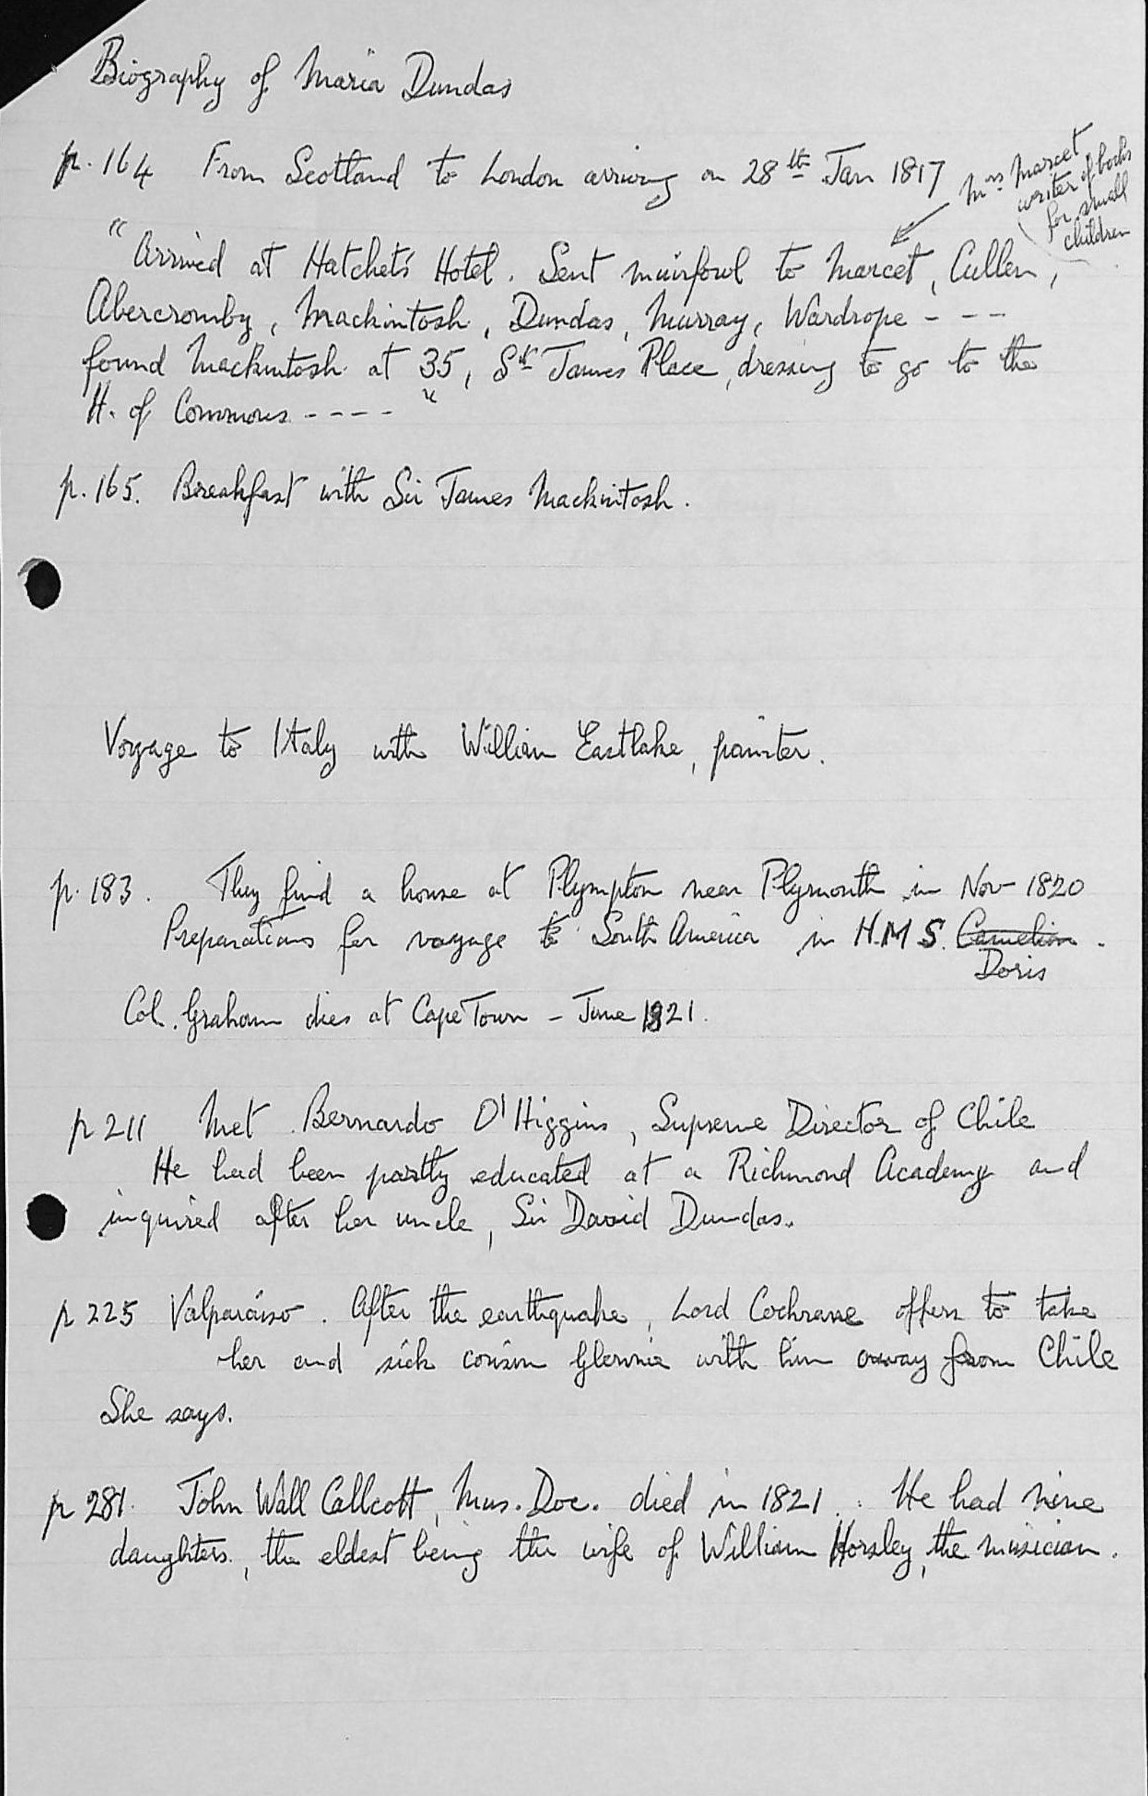 Biography of Maria Dundas
p. 164 From Scotland to London arriving on 28th Jan 1817
Mrs Marcet
writer of books
for small
children
"Arrived at Hatchet's Hotel. Sent muirfowl to Marcet, Cullen,
Abercromby, Mackintosh, Dundas, Murray, Wardrope - - -
found Mackintosh at 35, St James Place, dressing to go to the
H. of Commons - - - - "
p. 165. Breakfast with Sir James Mackintosh.
Voyage to Italy with William Eastlake, painter.
p. 183. They find a house at Plympton near Plymouth in Nov 1820
Preparations for voyage to South America in H.M.S. Camelion.
Doris
Col. Graham dies at Cape Town - June 1821.
p 211 Met Bernardo O'Higgins, Supreme Director of Chile
He had been partly educated at a Richmond Academy and
inquired after her uncle, Sir David Dundas.
p 225 Valparaiso. After the earthquake, Lord Cochrane offers to take
her and sick cousin Glennie with him away from Chile
She says.
p 281. John Wall Callcott, Mus. Doc. died in 1821. He had nine
daughters, the eldest being the wife of William Horsley, the musician.